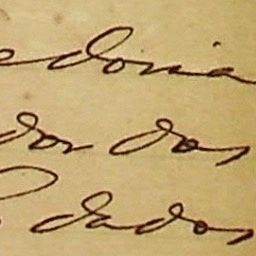 edoria
dor dos
dados